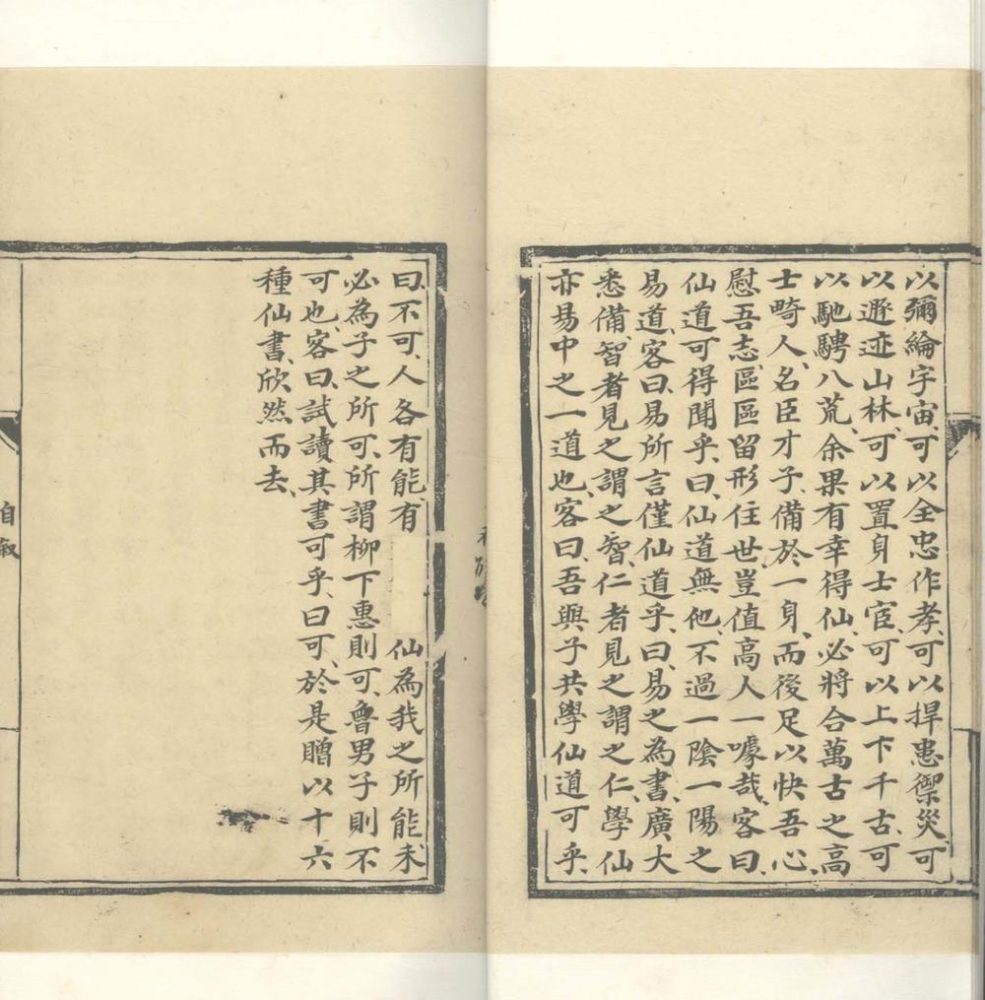 以彌綸宇宙、可以全忠作孝、可以捍患禦災、可
以遯迹山林、可以置身士宦、可以上下千古、可
以馳騁八荒、余果有幸得仙、必將合萬古之高
士畸人、名臣才子、備於一身、而後足以快吾心、
慰吾志、區區留形住世、豈值高人一噱哉、客曰、
仙道可得聞乎、曰、仙道無他、不過一陰一陽之
易道、客曰、易所言僅仙道乎、曰、易之為書、廣大
悉備、智者見之謂之智、仁者見之謂之仁、學仙
亦易中之一道也、客曰、吾與子共學仙道可乎、
曰、不可、人各有能、有 仙為我之所能、未
必為子之所可、所謂柳下惠則可、魯男子則不
可也、客曰、試讀其書可乎、曰可、於是贈以十六
種仙書、欣然而去、
自敘